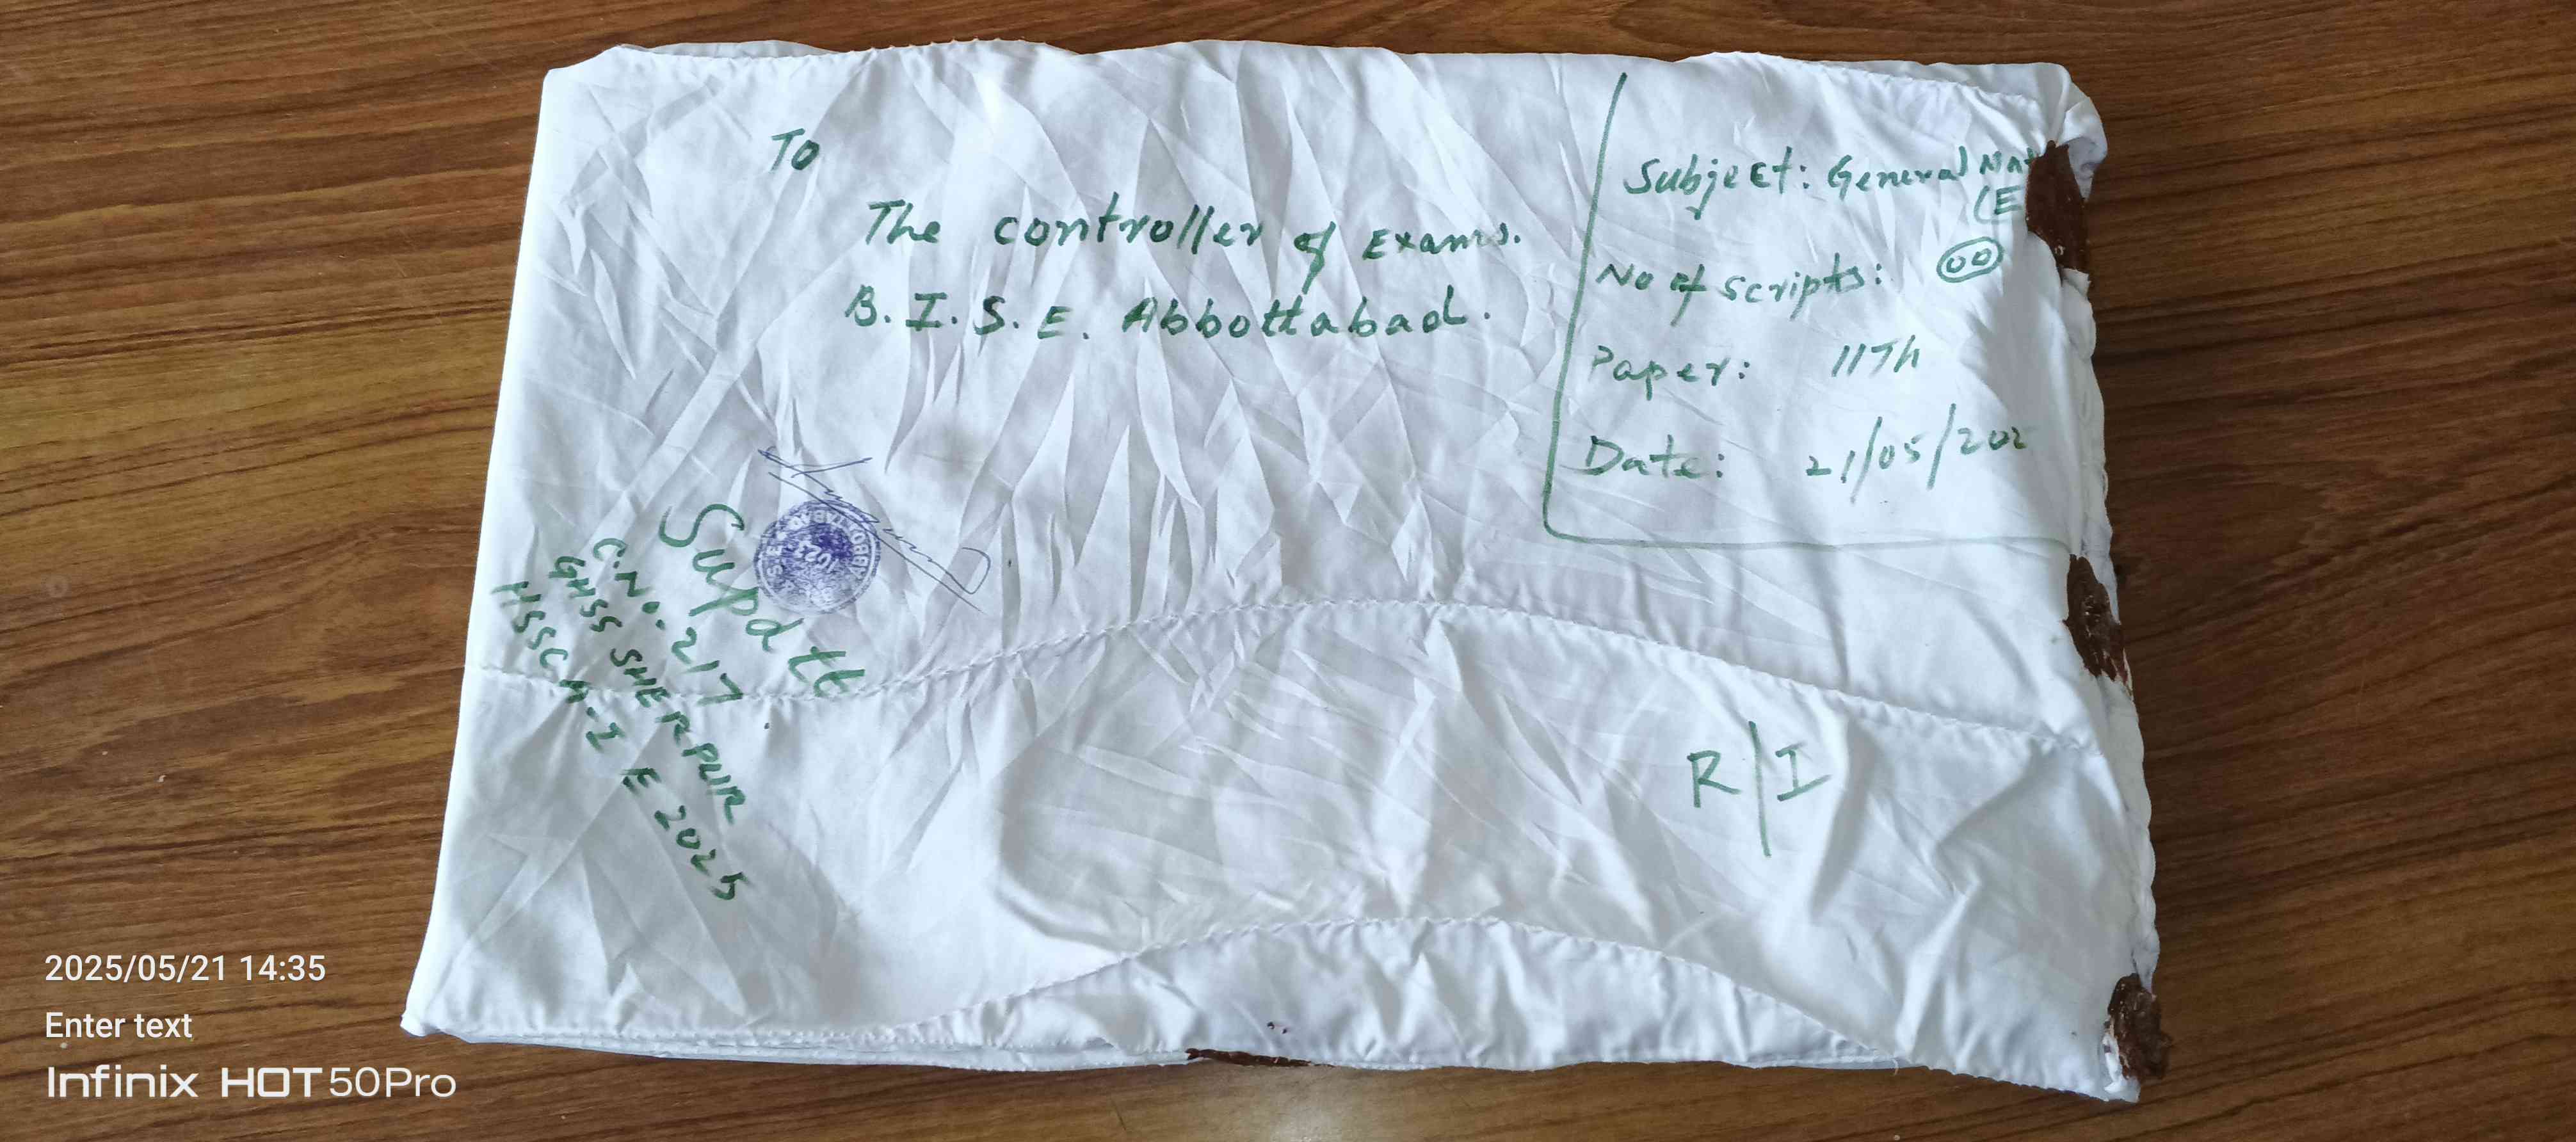 To
The controller of Exams.
B. I. S. E. Abbottabad.
Subject: General Mat
(E
No of scripts: 00
Paper: 11Th
Date: 21/05/202
Supdtt
C.No. 217
GHSS SHERPUR
HSSC A-I E 2025
ABBOTTABAD
R/I
2025/05/21 14:35
Enter text
Infinix HOT 50Pro